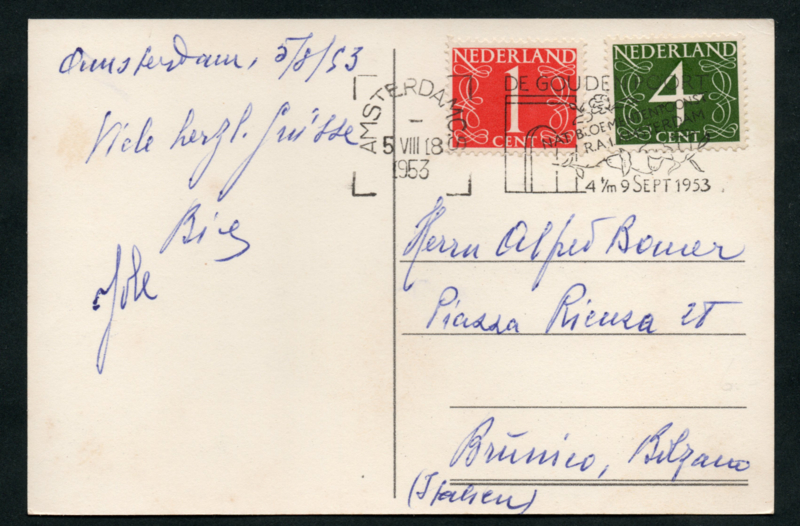 Amsterdam, 5/8/53
Viele herzl. Grüsse
NEDERLAND
1
CENT
NEDERLAND
4
CENT
AMSTERDAM CS
5 VIII 18
1953
DE GOUDEN POORT
RAI AMSTERDAM
4 t/m 9 SEPT 1953
Herrn Alfred Bomer
Piazza Rienza
Brunico, Bolzano
(Italien)